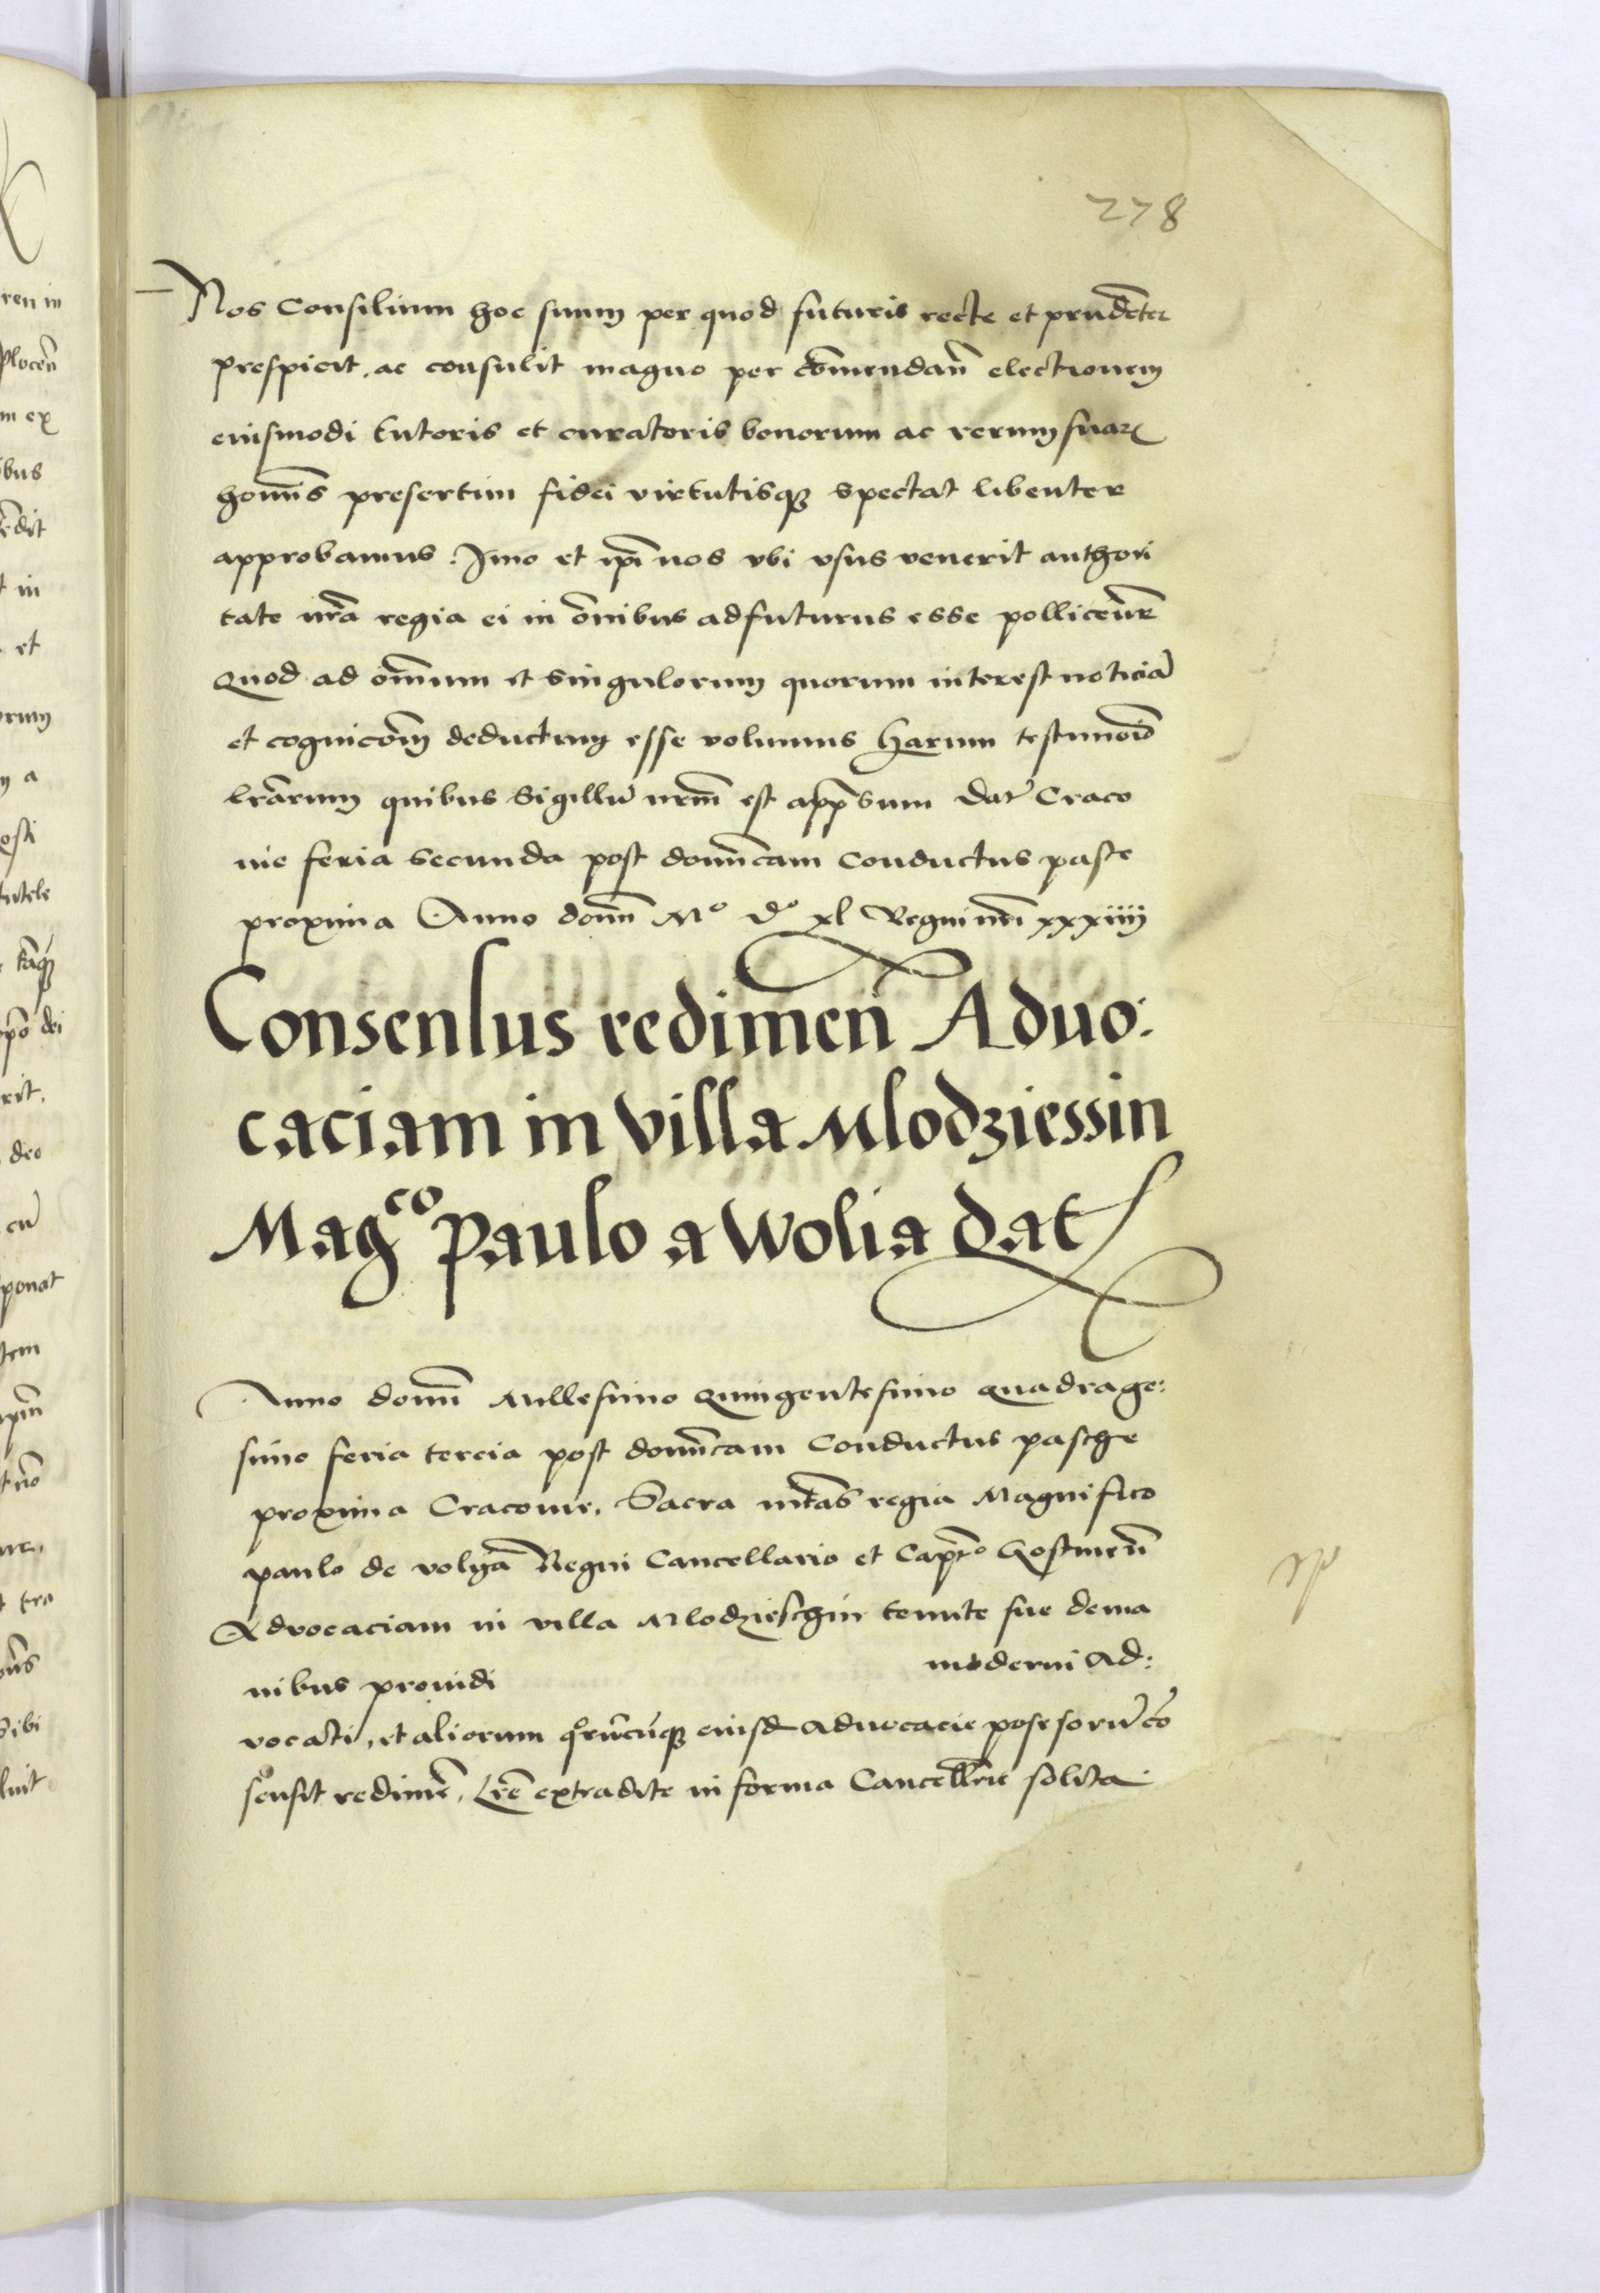 278
Nos Consilium hoc suum per quod futuris recte et prudēter
prespicit. ac consulit magno per cōmendan̄ electionem
eiusmodi tutoris et curatoris bonorum ac rerum suarꝝ
homīs presertim fidei virtutisqꝫ spectat libenter
approbamus. Imo et ip̄i nos vbi vsus venerit authori
tate nr̄a regia ei in ōnibus adfuturus esse pollicem̄r
Quod ad om̄ium et singulorum quorum interest noticiā
et cognicōm̄ deductum esse volumus Harum testimōīo
lr̄arum quibus Sigillū nrm̄ est app̄sum Dat̄ Craco
nie feria secunda post domīcam Conductus pasce
proxima Anno domī Mº dº xl Regni nr̄i xxxiiii
Consensus redimen̄ Aduo:
caciam in villa Mlodziessin
Mag^co Paulo a Wolia dat
Anno domī Millesimo Quingentesimo Quadrage:
simo feria tercia post domīcam Conductus pasche
proxima Cracovie. Sacra mt̄as regia Magnifico
paulo de volya Regni Cancellario et Cap̄tº Gostinen̄
Advocaciam in villa Mlodzieschin tenute sue de ma
nibus prouidi moderni Ad:
vocati, et aliorum qºrūcūqꝫ eiusd Aduocacie posesorū cō
sensit redimē. Lr̄e extradite in forma Cancellr̄ie solita